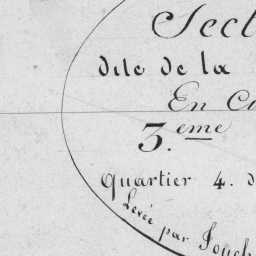 Sect
dite de la
En C
3.eme
Quartier 4. d
Levée par